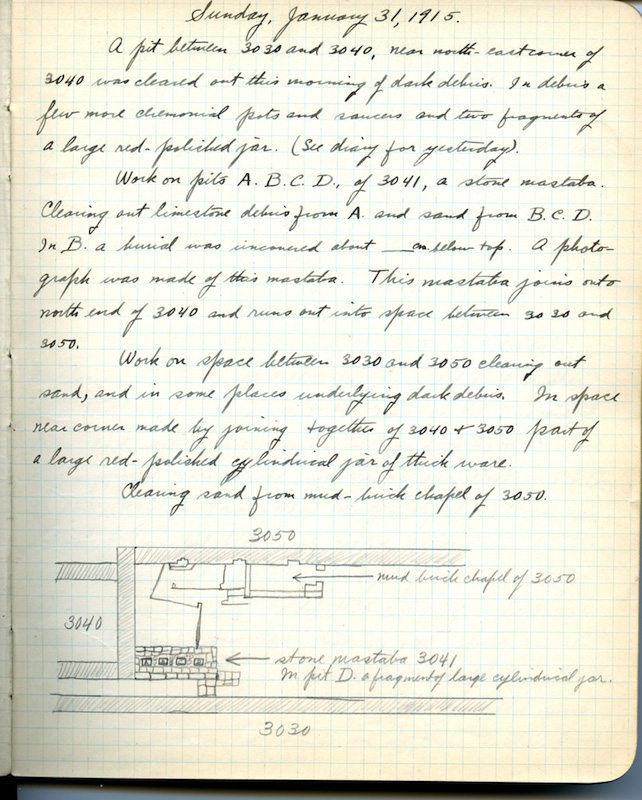 Sunday, January 31, 1915.
A pit between 3030 and 3040, near north-east corner of
3040 was cleared out this morning of dark debris. In debris a
few more ceremonial pots and saucers and two fragments of
a large red-polished jar. (See diary for yesterday).
Work on pits A. B. C. D., of 3041, a stone mastaba.
Clearing out limestone debris from A. and sand from B. C. D.
In B. a burial was uncovered about __cm. below top. A photo-
graph was made of this mastaba. This mastaba joins onto
north end of 3040 and runs out into space between 3030 and
3050.
Work on space between 3030 and 3050 clearing out
sand, and in some places underlying dark debris. In space
near corner made by joining together of 3040 + 3050 part of
a large red-polished cylindrical jar of thick ware.
Clearing sand from mud-brick chapel of 3050.
3050
mud brick chapel of 3050
3040
stone mastaba 3041
In pit D. a fragment of large cylindrical jar.
3030